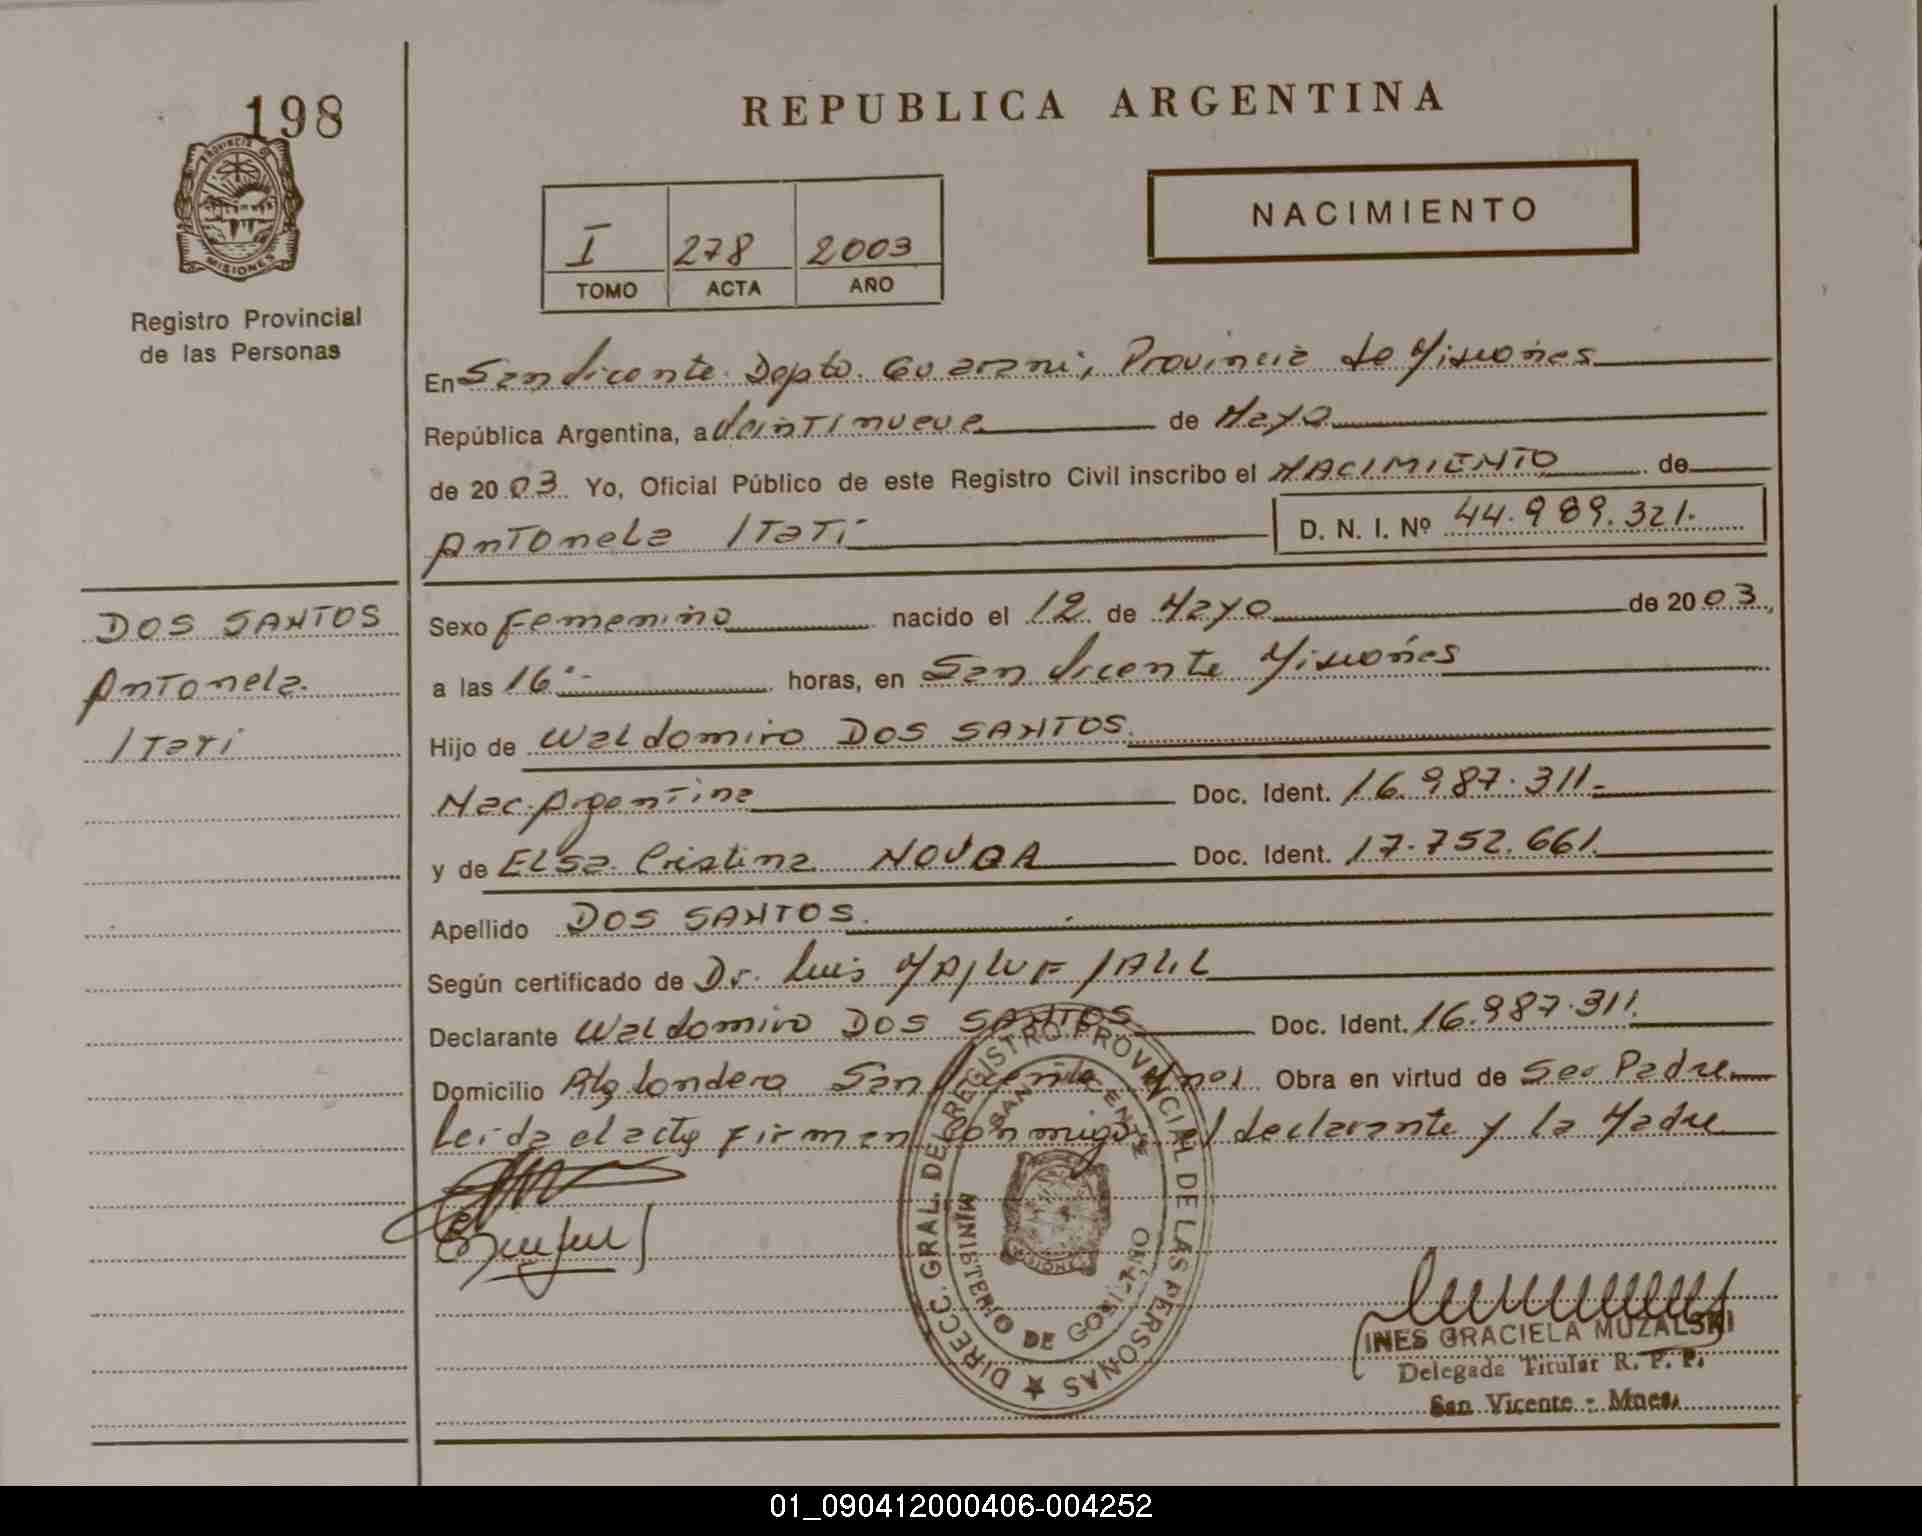 198
PROVINCIA DE
MISIONES
Registro Provincial
de las Personas
REPUBLICA ARGENTINA
I 278 2003
TOMO ACTA AÑO
NACIMIENTO
En San Vicente Depto. Guarani, Provincia de Misiones
República Argentina, a Veintinueve de Mayo
de 2003 Yo, Oficial Público de este Registro Civil inscribo el NACIMIENTO de
Antonela Itatí D. N. I. Nº 44.989.321.
DOS SANTOS
Antonela
Itatí
Sexo Femenino nacido el 12 de Mayo de 2003,
a las 16 horas, en San Vicente Misiones
Hijo de Waldomiro DOS SANTOS.
Nac. Argentina Doc. Ident. 16.987.311.-
y de Elsa Cristina Doc. Ident. 17.752.661.
Apellido DOS SANTOS.
Según certificado de Dr. Luis JALIL
Declarante Waldomiro DOS SANTOS Doc. Ident. 16.987.311.
Domicilio San Vicente Mnes. Obra en virtud de Ser Padre
Leida el acta firman conmigo el declarante y la Madre
DIRECC. GRAL. DEL REGISTRO PROVINCIAL DE LAS PERSONAS
SAN VICENTE
MINISTERIO DE GOBIERNO
MISIONES
INES GRACIELA MUZALSKI
Delegada Titular R. P. P.
San Vicente - Mnes.
01_090412000406-004252